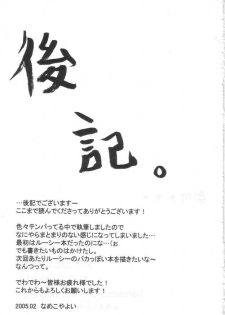 後
記。
…後記でございますー
ここまで読んでくださってありがとうございます！
色々テンパってる中で執筆しましたので
なにやらまとまりのない感じになってしまいました…
最初はルーシー本だったのにな…(ぉ
でも書きたいものはかけたし。
次回あたりルーシーのバカっぽい本を描きたいな～
なんつって。
でわでわ～皆様お疲れ様でした！
これからもよろしくお願いします！
2005.02 なめこやよい